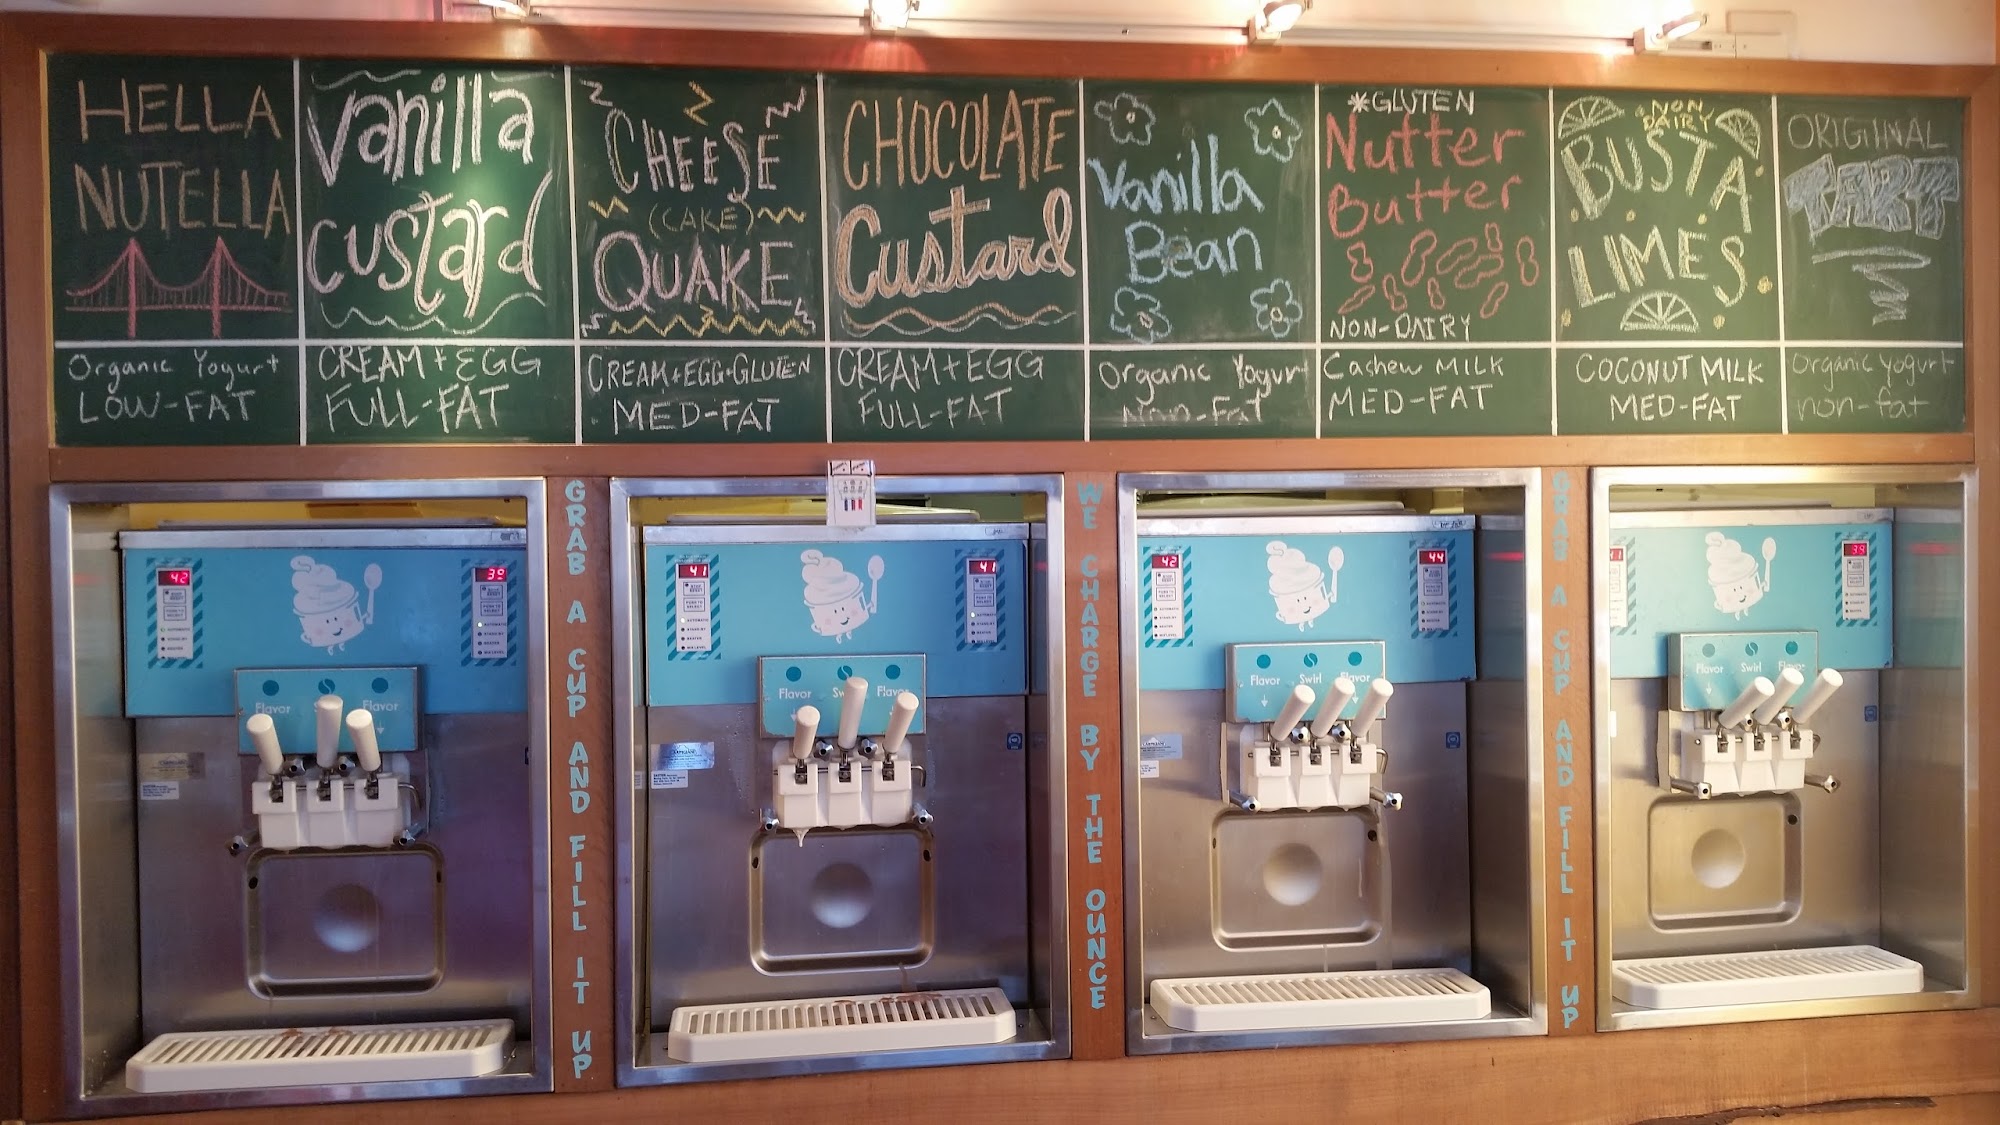 HELLA
NUTELLA
Organic Yogurt
LOW-FAT
Vanilla
Custard
CREAM + EGG
FULL-FAT
CHEESE
(CAKE)
QUAKE
CREAM+EGG+GLUTEN
MED-FAT
CHOCOLATE
Custard
CREAM + EGG
FULL-FAT
Vanilla
Bean
Organic Yogurt
Non-Fat
*GLUTEN
Nutter
Butter
NON-DAIRY
Cashew MILK
MED-FAT
NON
DAIRY
BUSTA
LIMES
COCONUT MILK
MED-FAT
ORIGINAL
TART
Organic yogurt
non-fat
GRAB A CUP AND FILL IT UP
WE CHARGE BY THE OUNCE
GRAB A CUP AND FILL IT UP
42
39
Flavor
Flavor
41
41
Flavor
Flavor
42
44
Flavor Swirl Flavor
39
Flavor Swirl Flavor